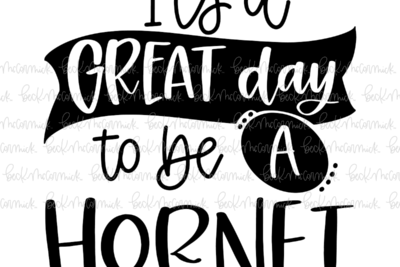 It's a
GREAT day
to be A
HORNET